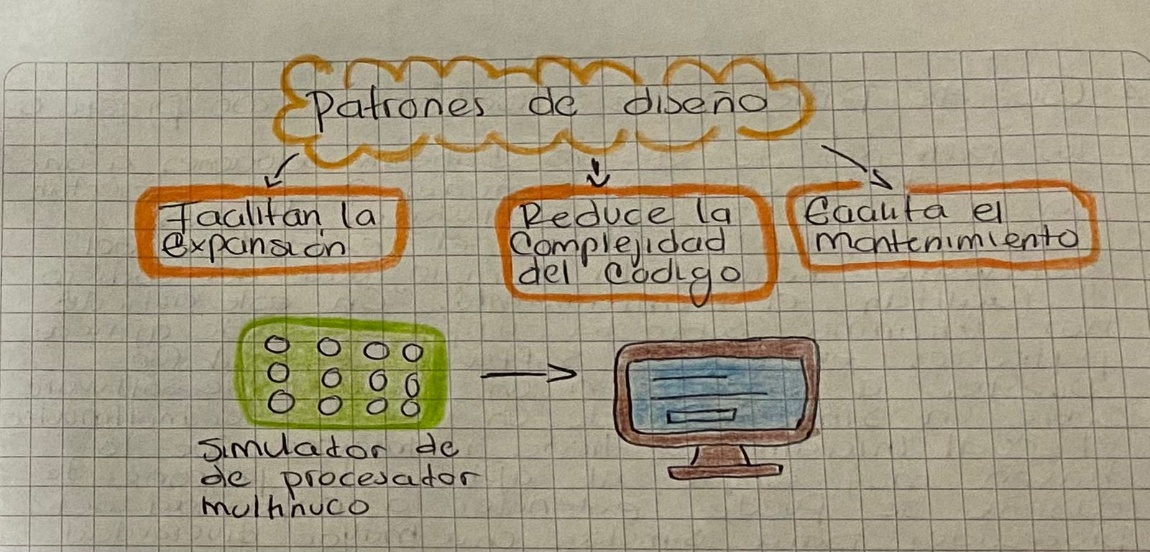 Patrones de diseño
Facilitan la
expansión
Reduce la
Complejidad
del código
Facilita el
mantenimiento
Simulador de
de procesador
multinuco